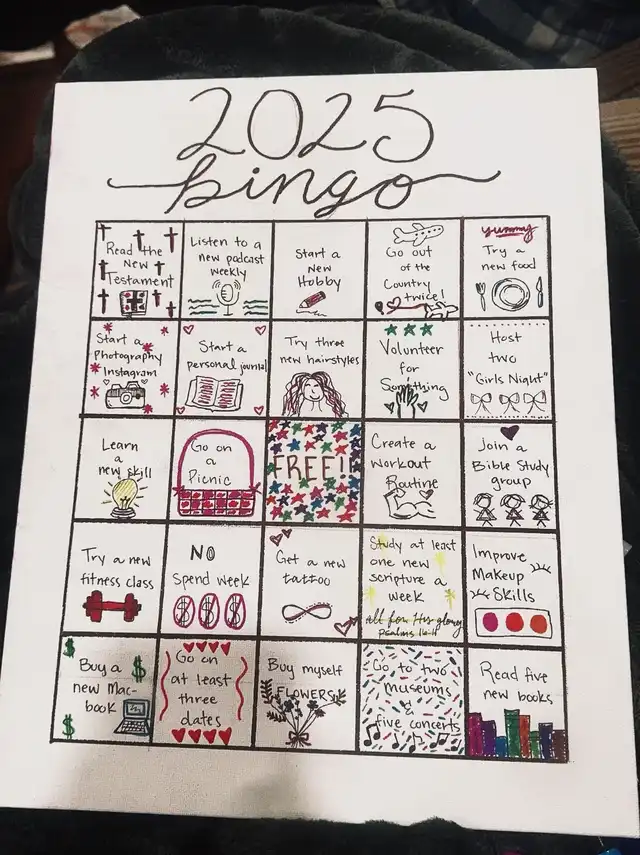 2025
bingo
Read the
New
Testament
Listen to a
new podcast
weekly
Start a
New
Hobby
Go out
of the
Country
twice!
yummy
Try a
new food
Start a
Photography
Instagram
Start a
personal journal
Try three
new hairstyles
Volunteer
for
Something
Host
two
"Girls Night"
Learn
a
new skill
Go on
a
Picnic
FREE!!
Create a
Workout
Routine
Join a
Bible Study
group
Try a new
fitness class
NO
Spend week
$ $ $
Get a new
tattoo
Study at least
one new
scripture a
week
All for His glory
psalms 16:11
Improve
Makeup
Skills
$
Buy a $
new Mac-
book
$
Go on
at least
three
dates
Buy myself
FLOWERS
Go to two
museums
&
five concerts
Read five
new books